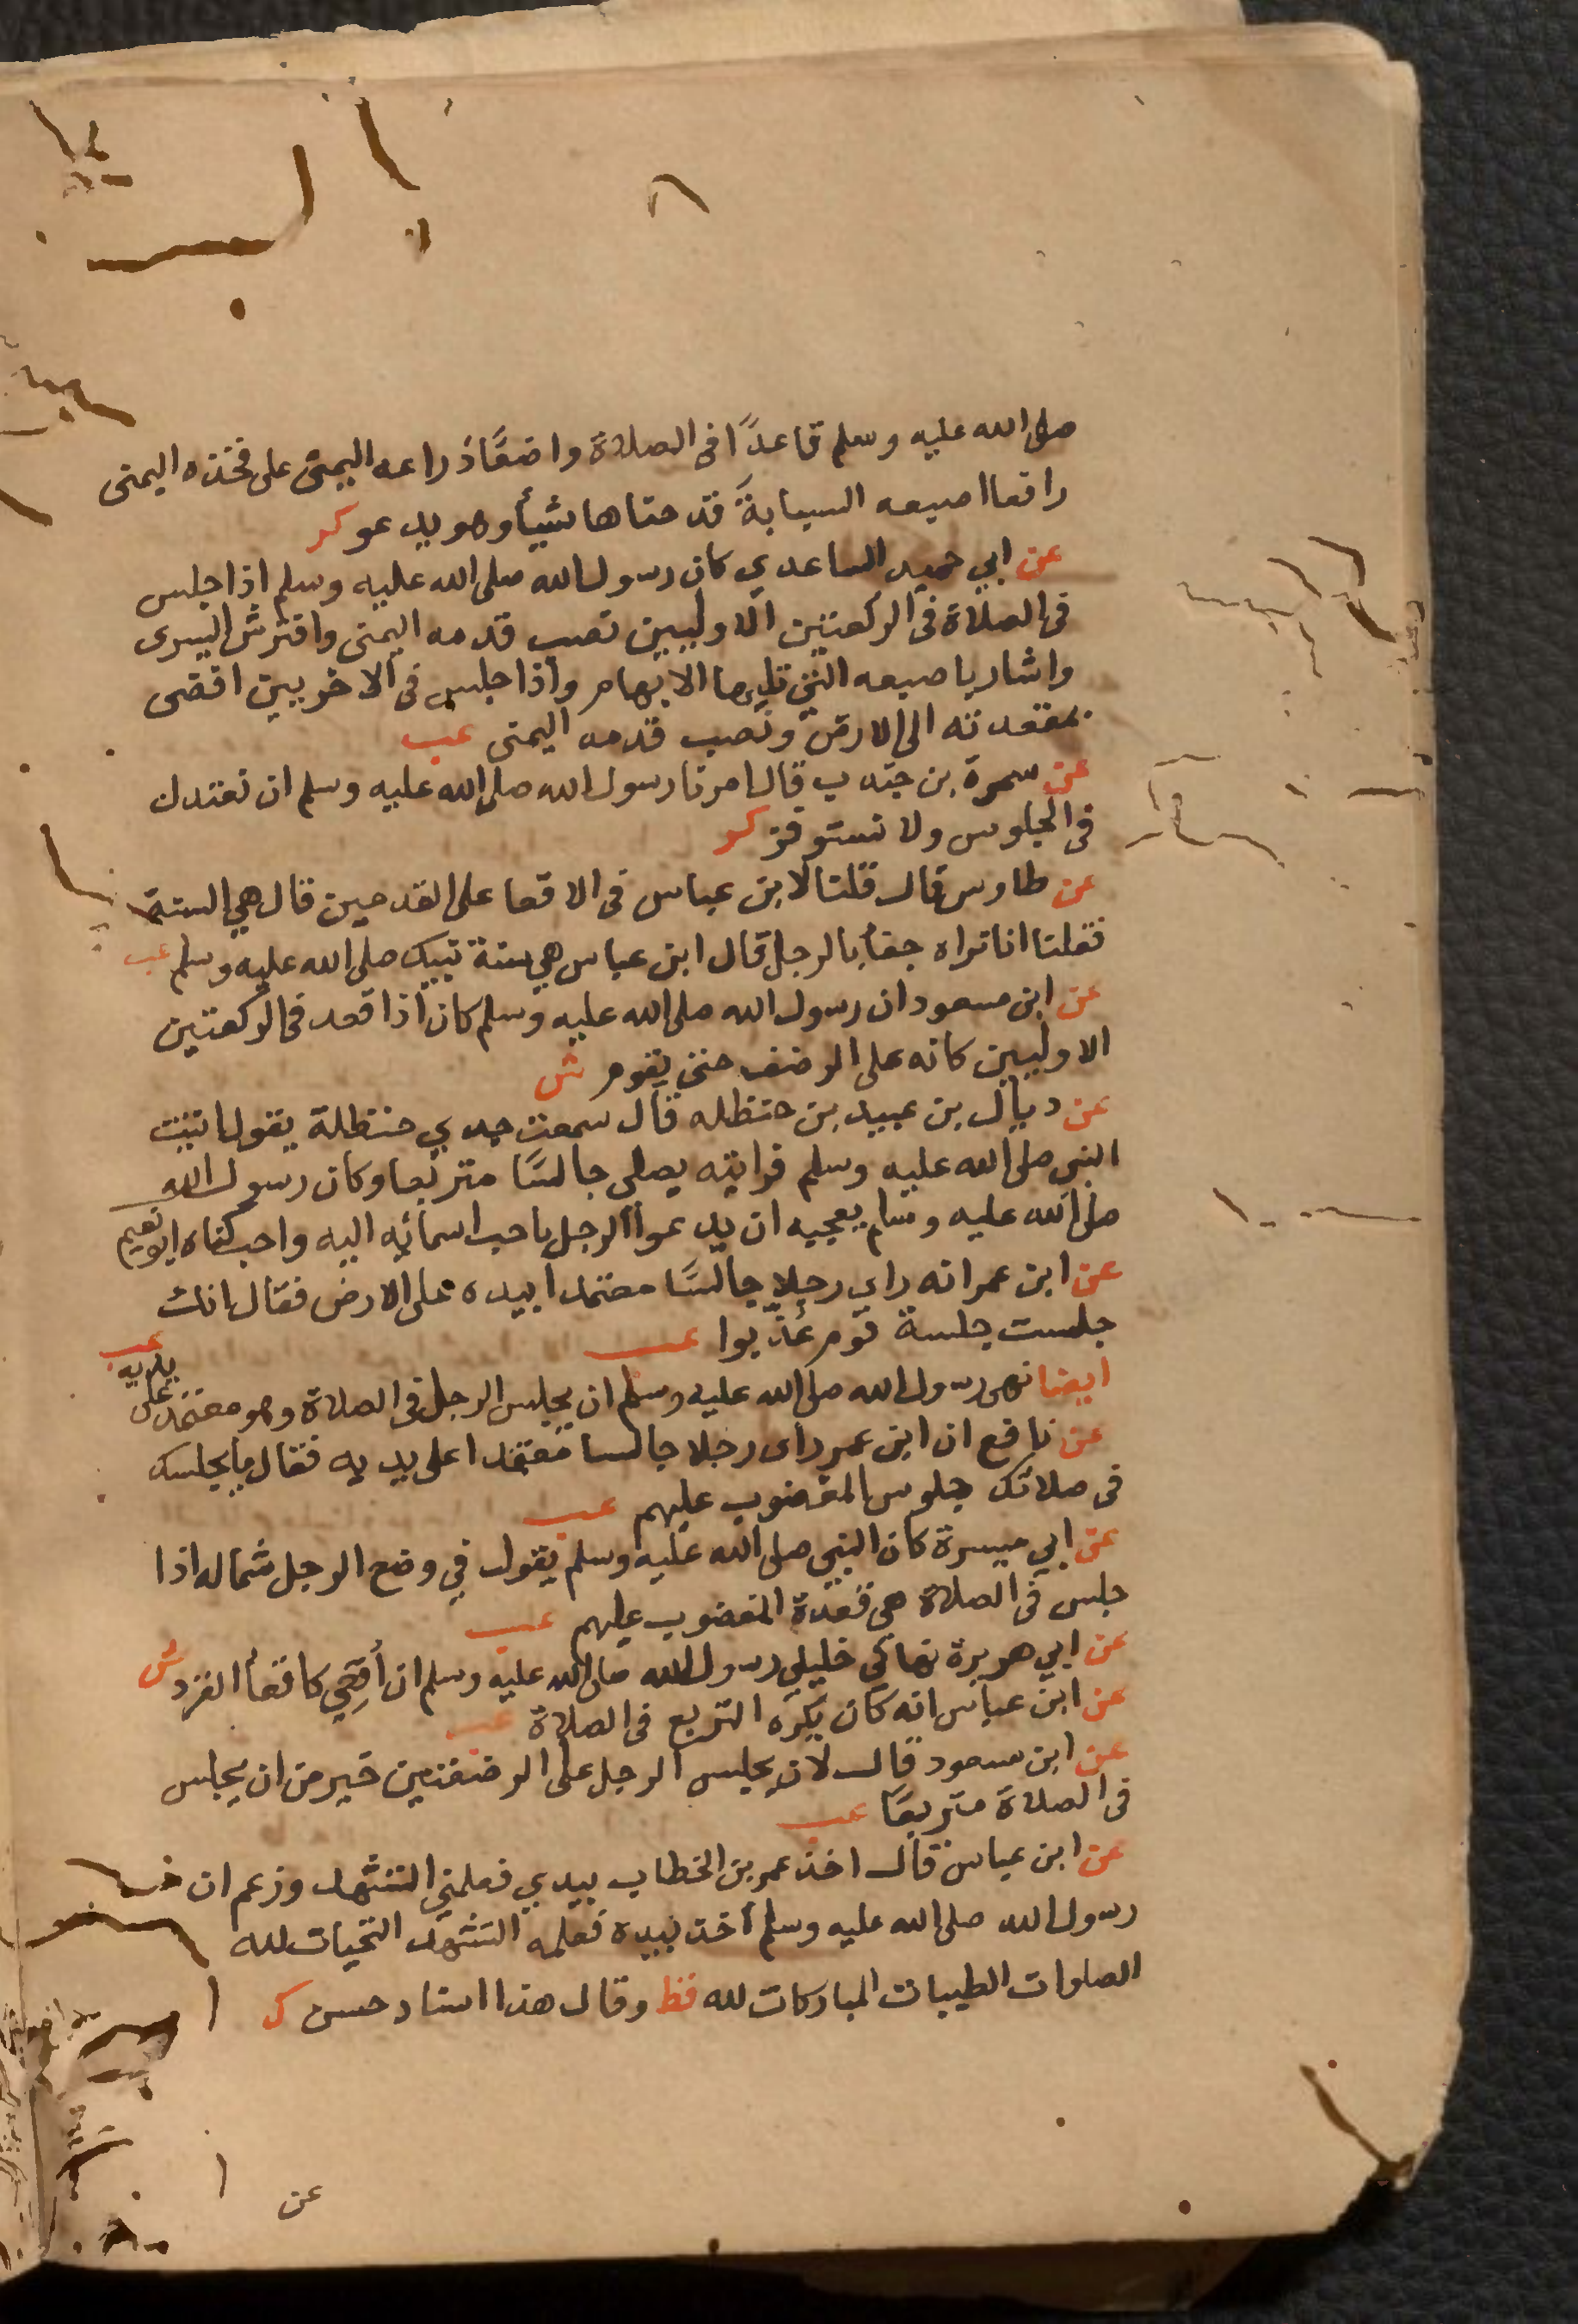 صلى الله عليه وسلم قاعدًا فى الصلاة واضعًا ذراعه اليمنى على فخذه اليمنى
رافعا اصبعه السبابة قد حناها شيأ وهو يدعو كر
عن ابي حميد الساعدي كان رسول الله صلى الله عليه وسلم اذا جلس
فى الصلاة فى الركعتين الاوليين نصب قدمه اليمنى وافترش اليسرى
واشار باصبعه التى تليها الابهام واذا جلس فى الاخريين افضى
بمقعدته الى الارض ونصب قدمه اليمنى عب
عن سمرة بن جندب قال امرنا رسول الله صلى الله عليه وسلم ان نعتدل
فى الجلوس ولا نستوفز كر
عن طاوس قال قلنا لابن عباس فى الاقعا على القدمين قال هي السنة
فقلنا انا نراه جفأ بالرجل قال ابن عباس هي سنة نبيك صلى الله عليه وسلم عب
عن ابن مسعود ان رسول الله صلى الله عليه وسلم كان اذا قعد فى الركعتين
الاوليين كانه على الرضف حتى يقوم ش
عن ديال بن عبيد بن حنظله قال سمعت جدي حنظلة يقول اتيت
النبي صلى الله عليه وسلم فرايته يصلى جالسًا متربعا وكان رسول الله
صلى الله عليه وسلم يعجبه ان يدعوا الرجل باحب اسمائه اليه واحب كناه ابو نعيم
عن ابن عمر انه راي رجلا جالسًا معتمدا بيده على الارض فقال انك
جلست جلسة قوم عُذّبوا عب
ايضا نهى رسول الله صلى الله عليه وسلم ان يجلس الرجل فى الصلاة وهو معتمد على يديه عب
عن نافع ان ابن عمر راى رجلا جالسا معتمدا على يديه فقال ما يجلسك
فى صلاتك جلوس المغضوب عليهم عب
عن ابي ميسرة كان النبي صلى الله عليه وسلم يقول في وضع الرجل شماله اذا
جلس فى الصلاة هى قعدة المغضوب عليهم عب
عن ابي هريرة نهاني خليلي رسول الله صلى الله عليه وسلم ان أقعِي كاقعأ القرد ش
عن ابن عباس انه كان يكره التربع فى الصلاة عب
عن ابن مسعود قال لان يجلس الرجل على الرضفتين خير من ان يجلس
فى الصلاة متربعًا عب
عن ابن عباس قال اخذ عمر بن الخطاب بيدي فعلمني التشهد وزعم ان
رسول الله صلى الله عليه وسلم اخذ بيده فعلمه التشهد التحيات لله
الصلوات الطيبات المباركات لله قط وقال هذا اسناد حسن ك
عن